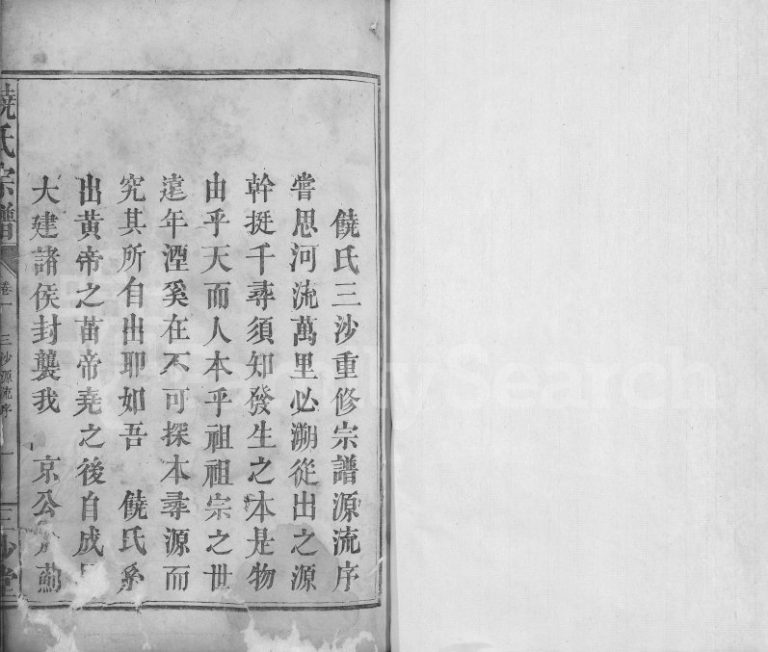 饒氏三沙重修宗譜源流序
嘗思河流萬里必溯從出之源
幹挺千尋須知發生之本是物
由乎天而人本乎祖祖宗之世
遠年湮奚在不可探本尋源而
究其所自出耶如吾 饒氏系
出黃帝之苗帝堯之後自成周
大建諸侯封襲我 京公於薊
饒氏宗譜 卷一 三沙源流序 一 三沙堂
FamilySearch